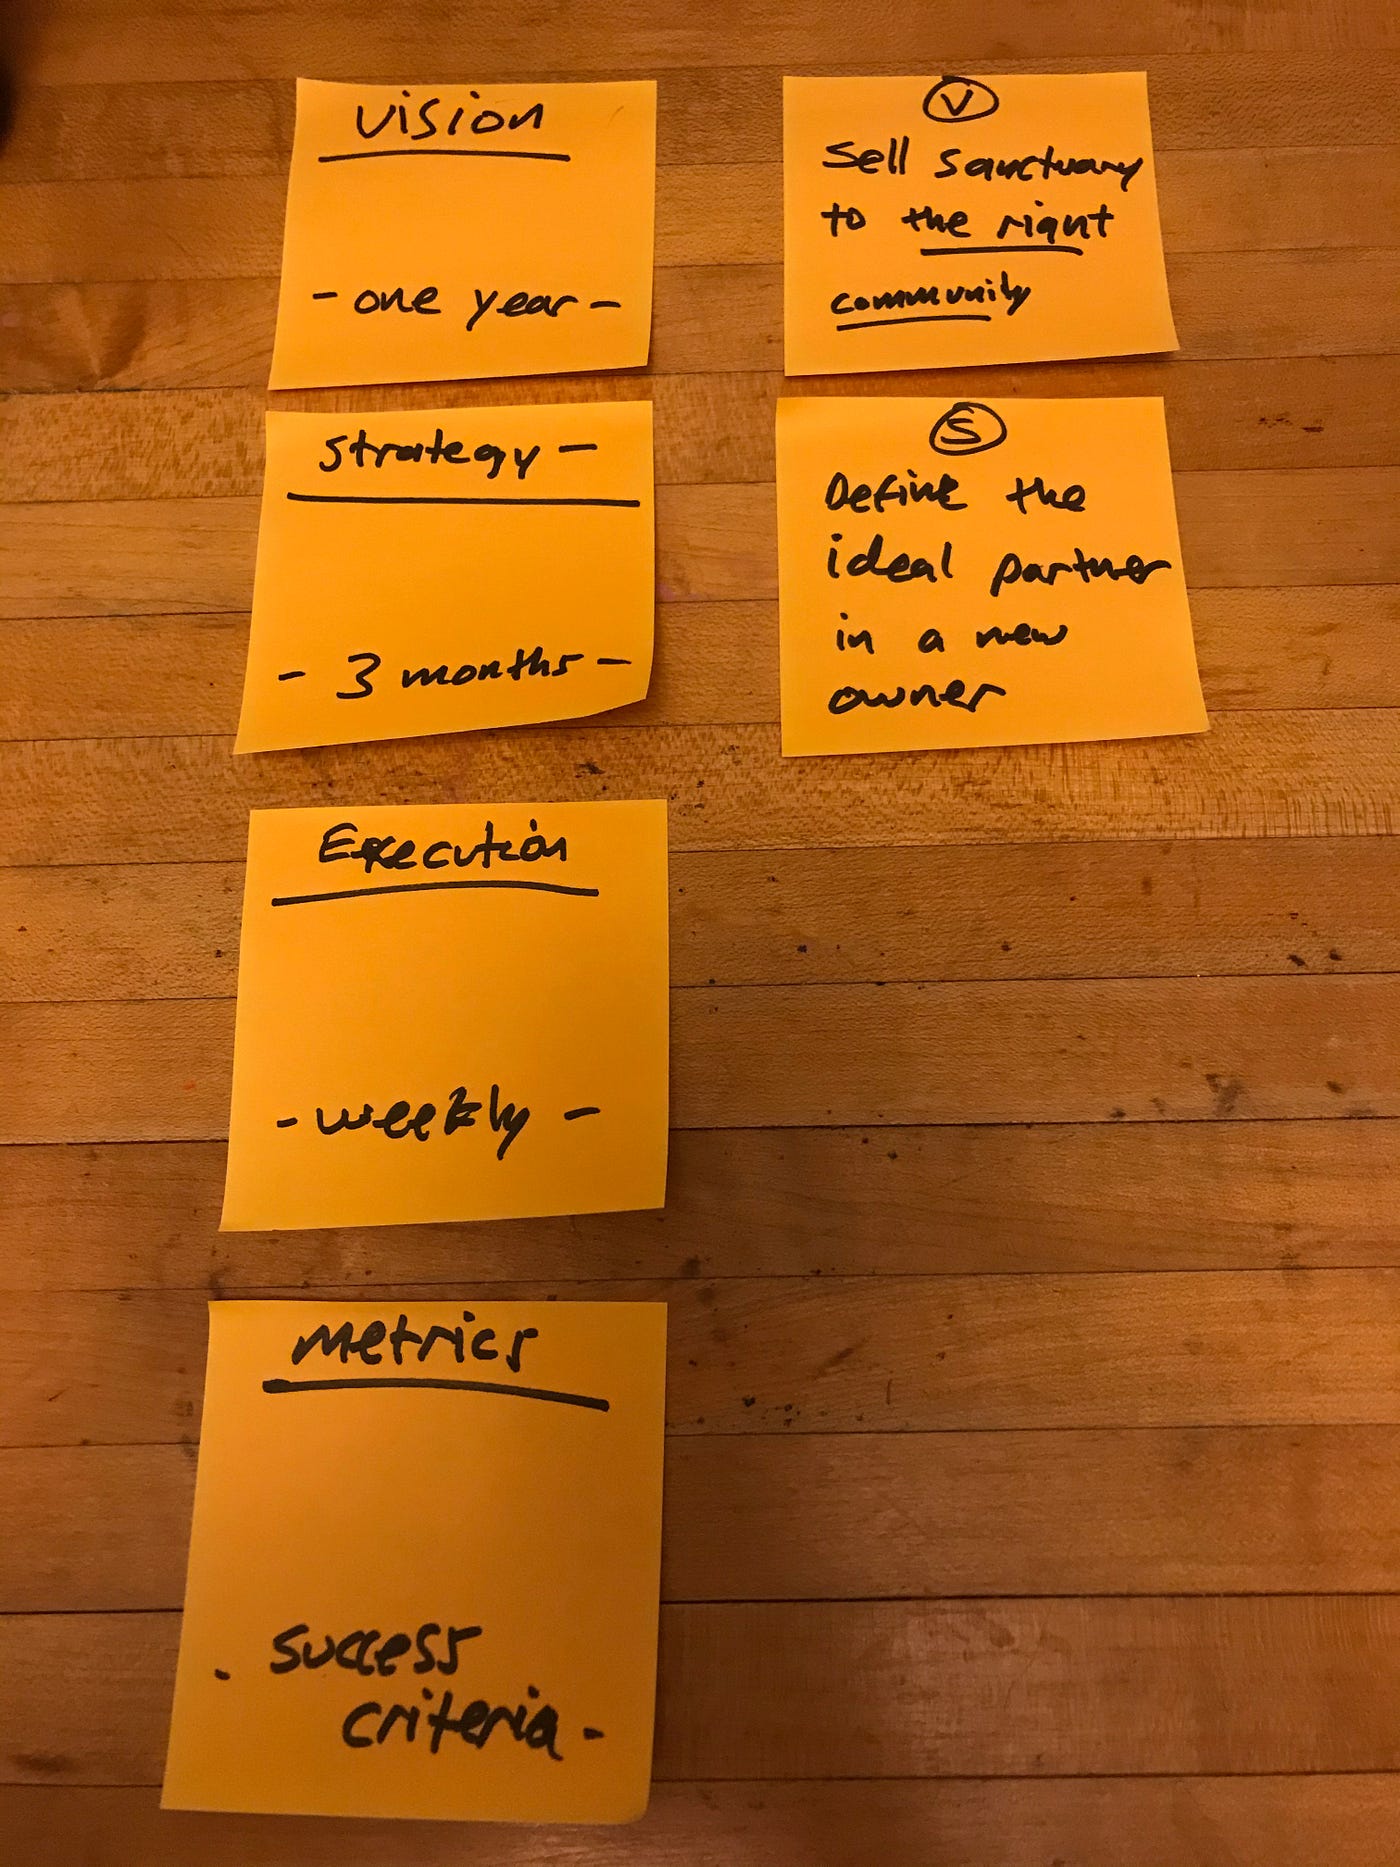 vision
- one year -
V
Sell Sanctuary
to the right
community
Strategy -
- 3 months -
S
Define the
ideal partner
in a new
owner
Execution
- weekly -
metrics
. success
criteria -